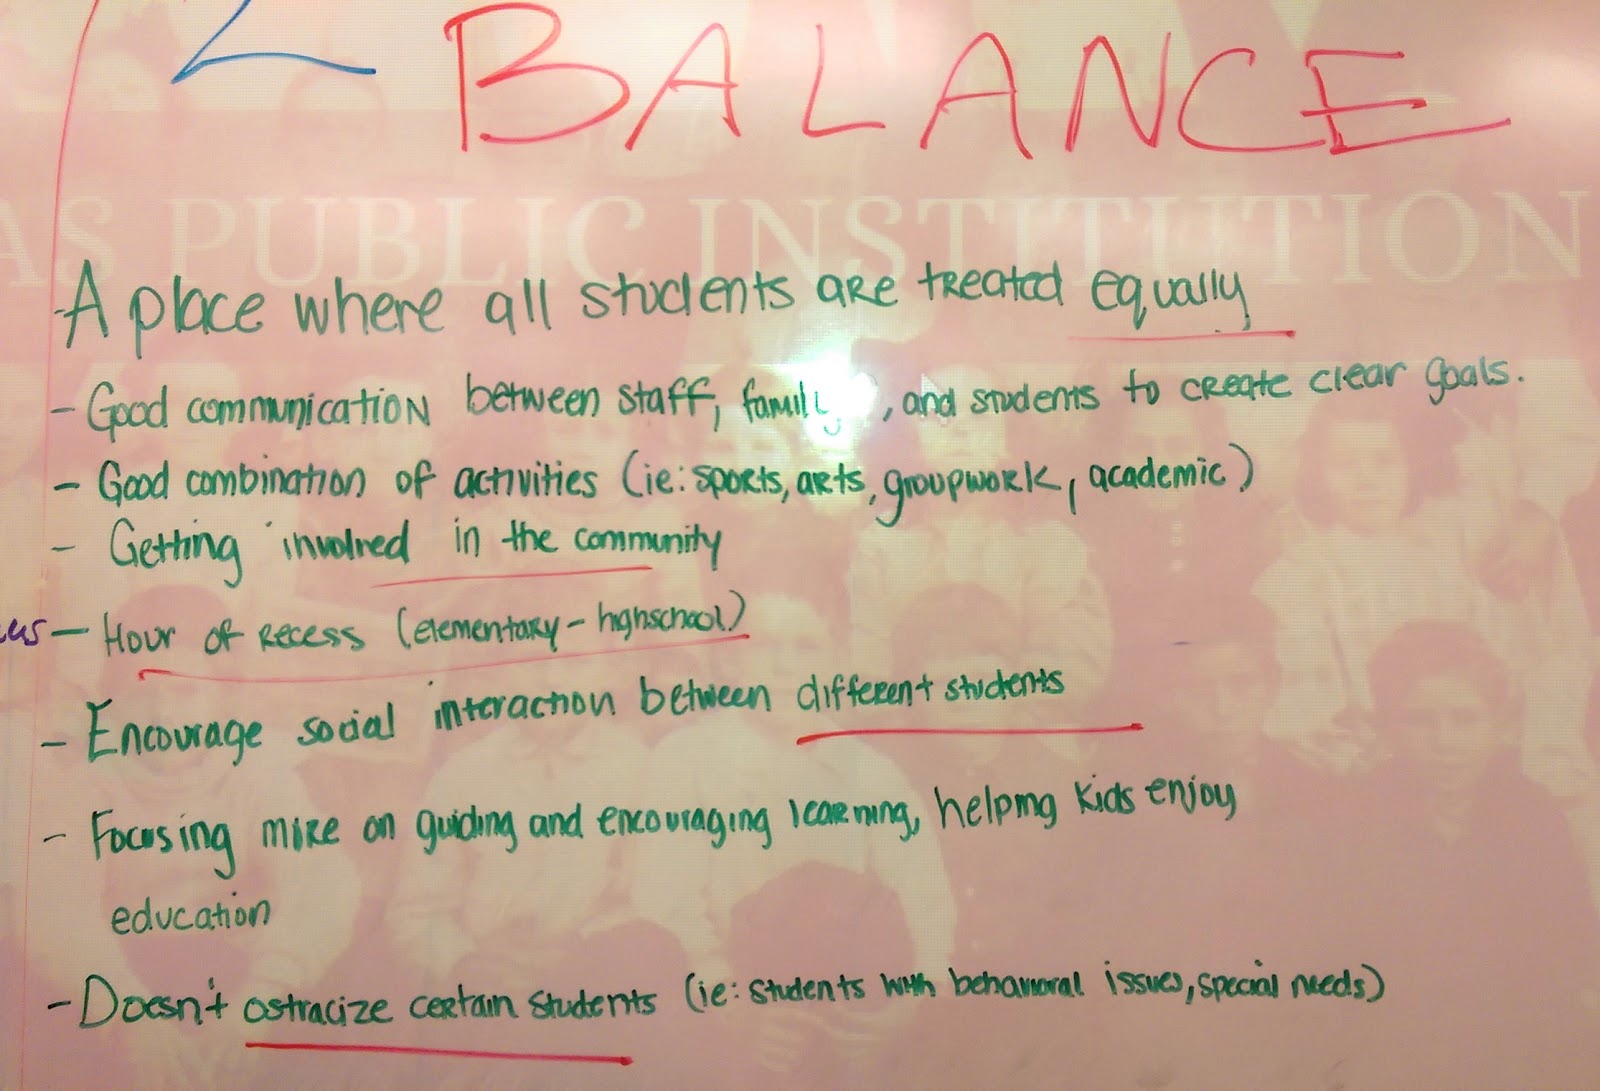 BALANCE
AS PUBLIC INSTITUTION
-A place where all students are treated equally
- Good communication between staff, family, and students to create clear goals.
- Good combination of activities (ie: sports, arts, groupwork, academic)
- Getting involved in the community
- Hour of recess (elementary - highschool)
- Encourage social interaction between different students
- Focusing more on guiding and encouraging learning, helping kids enjoy
education
- Doesn't ostracize certain students (ie: students with behavioral issues, special needs)